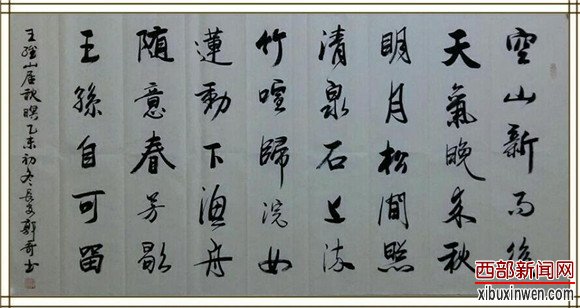 空山新雨後
天氣晚来秋
明月松間照
清泉石上流
竹喧歸浣女
蓮動下漁舟
随意春芳歇
王孫自可留
王維山居秋暝乙未初冬長安郭奇书
西部新闻网
xibuxinwen.com